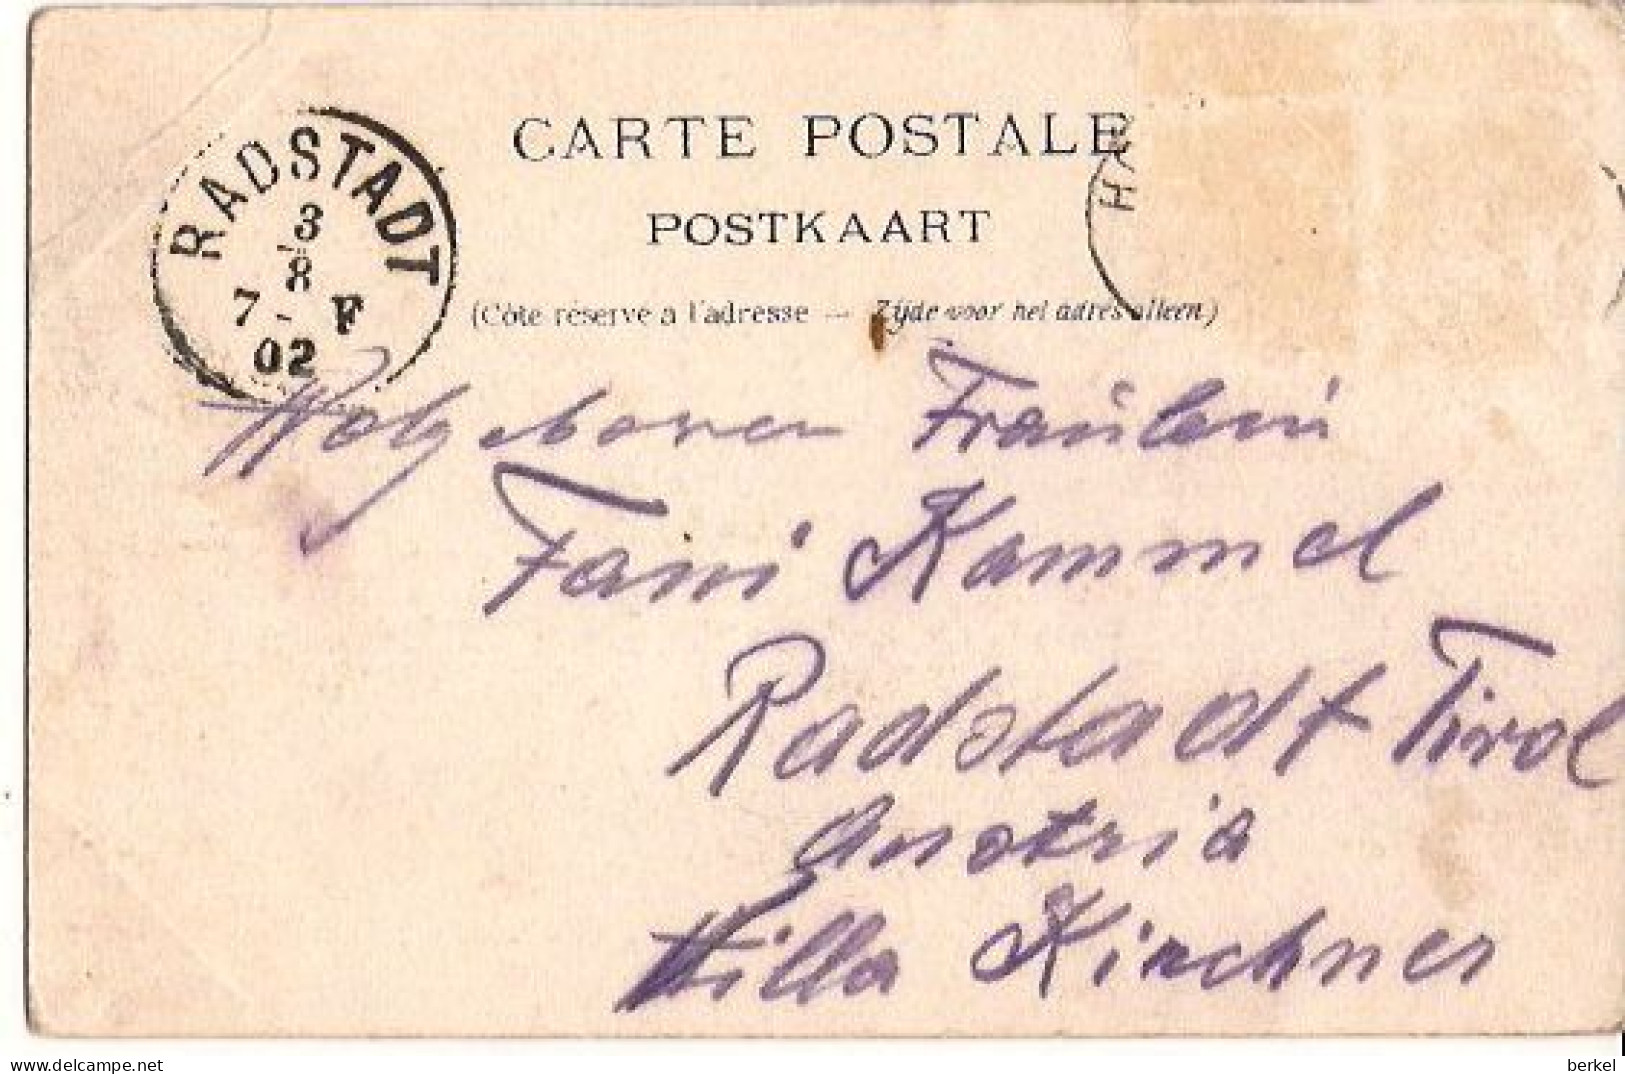 CARTE POSTALE
POSTKAART
(Côte réservé a l'adresse — Zijde voor het adres alleen)
RADSTADT
3
8
7 F
02
HA
Wolgeborener Fräulein
Fani Kammel
Radstadt Tirol
Austria
Villa Kirchner
delcampe.net
berkel